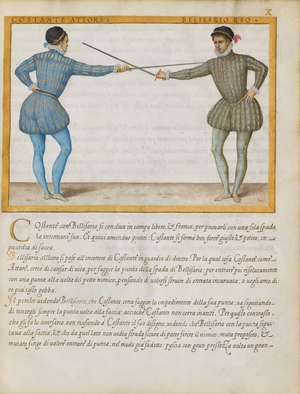 X
COSTANTE ATTORE
BELISARIO REO
Costante con Bellisario si conduce in campo libero, & franco, per provarsi con una sola spada,
la intentione sua. Et quivi amendue giunti Costante si ferma ben forte, giusto, & polito, in
guardia di faccia.
Bellisario all'hora si pose all'incontro di Costante in guardia di dentro. Per la qual cosa Costante come
Attore, cerca di causar di vita, per fuggir la punta della spada di Bellisario; per entrare poi risolutamente
con una punta alla volta del petto nemico, pensando di volersi servire di entrata incartata, o vogliamo di
re
Il perche vedendo Bellisario, che Costante cerca fuggire lo impedimento della sua punta,
di tenergli sempre la punta volta alla faccia: accioche Costante non corra inanti. Per questo contrasto,
che gli fa lo aversario, non riuscendo à Costante il suo disegno: vedendo che Bellisario con la punta
tua alla faccia; & che da quel lato non vedea strada sicura di poter ferire il nimico, muta proposito, &
mutato finge di volere entrare di punta, nel modo piu sudetto; poscia con gran prestezza volta un gran